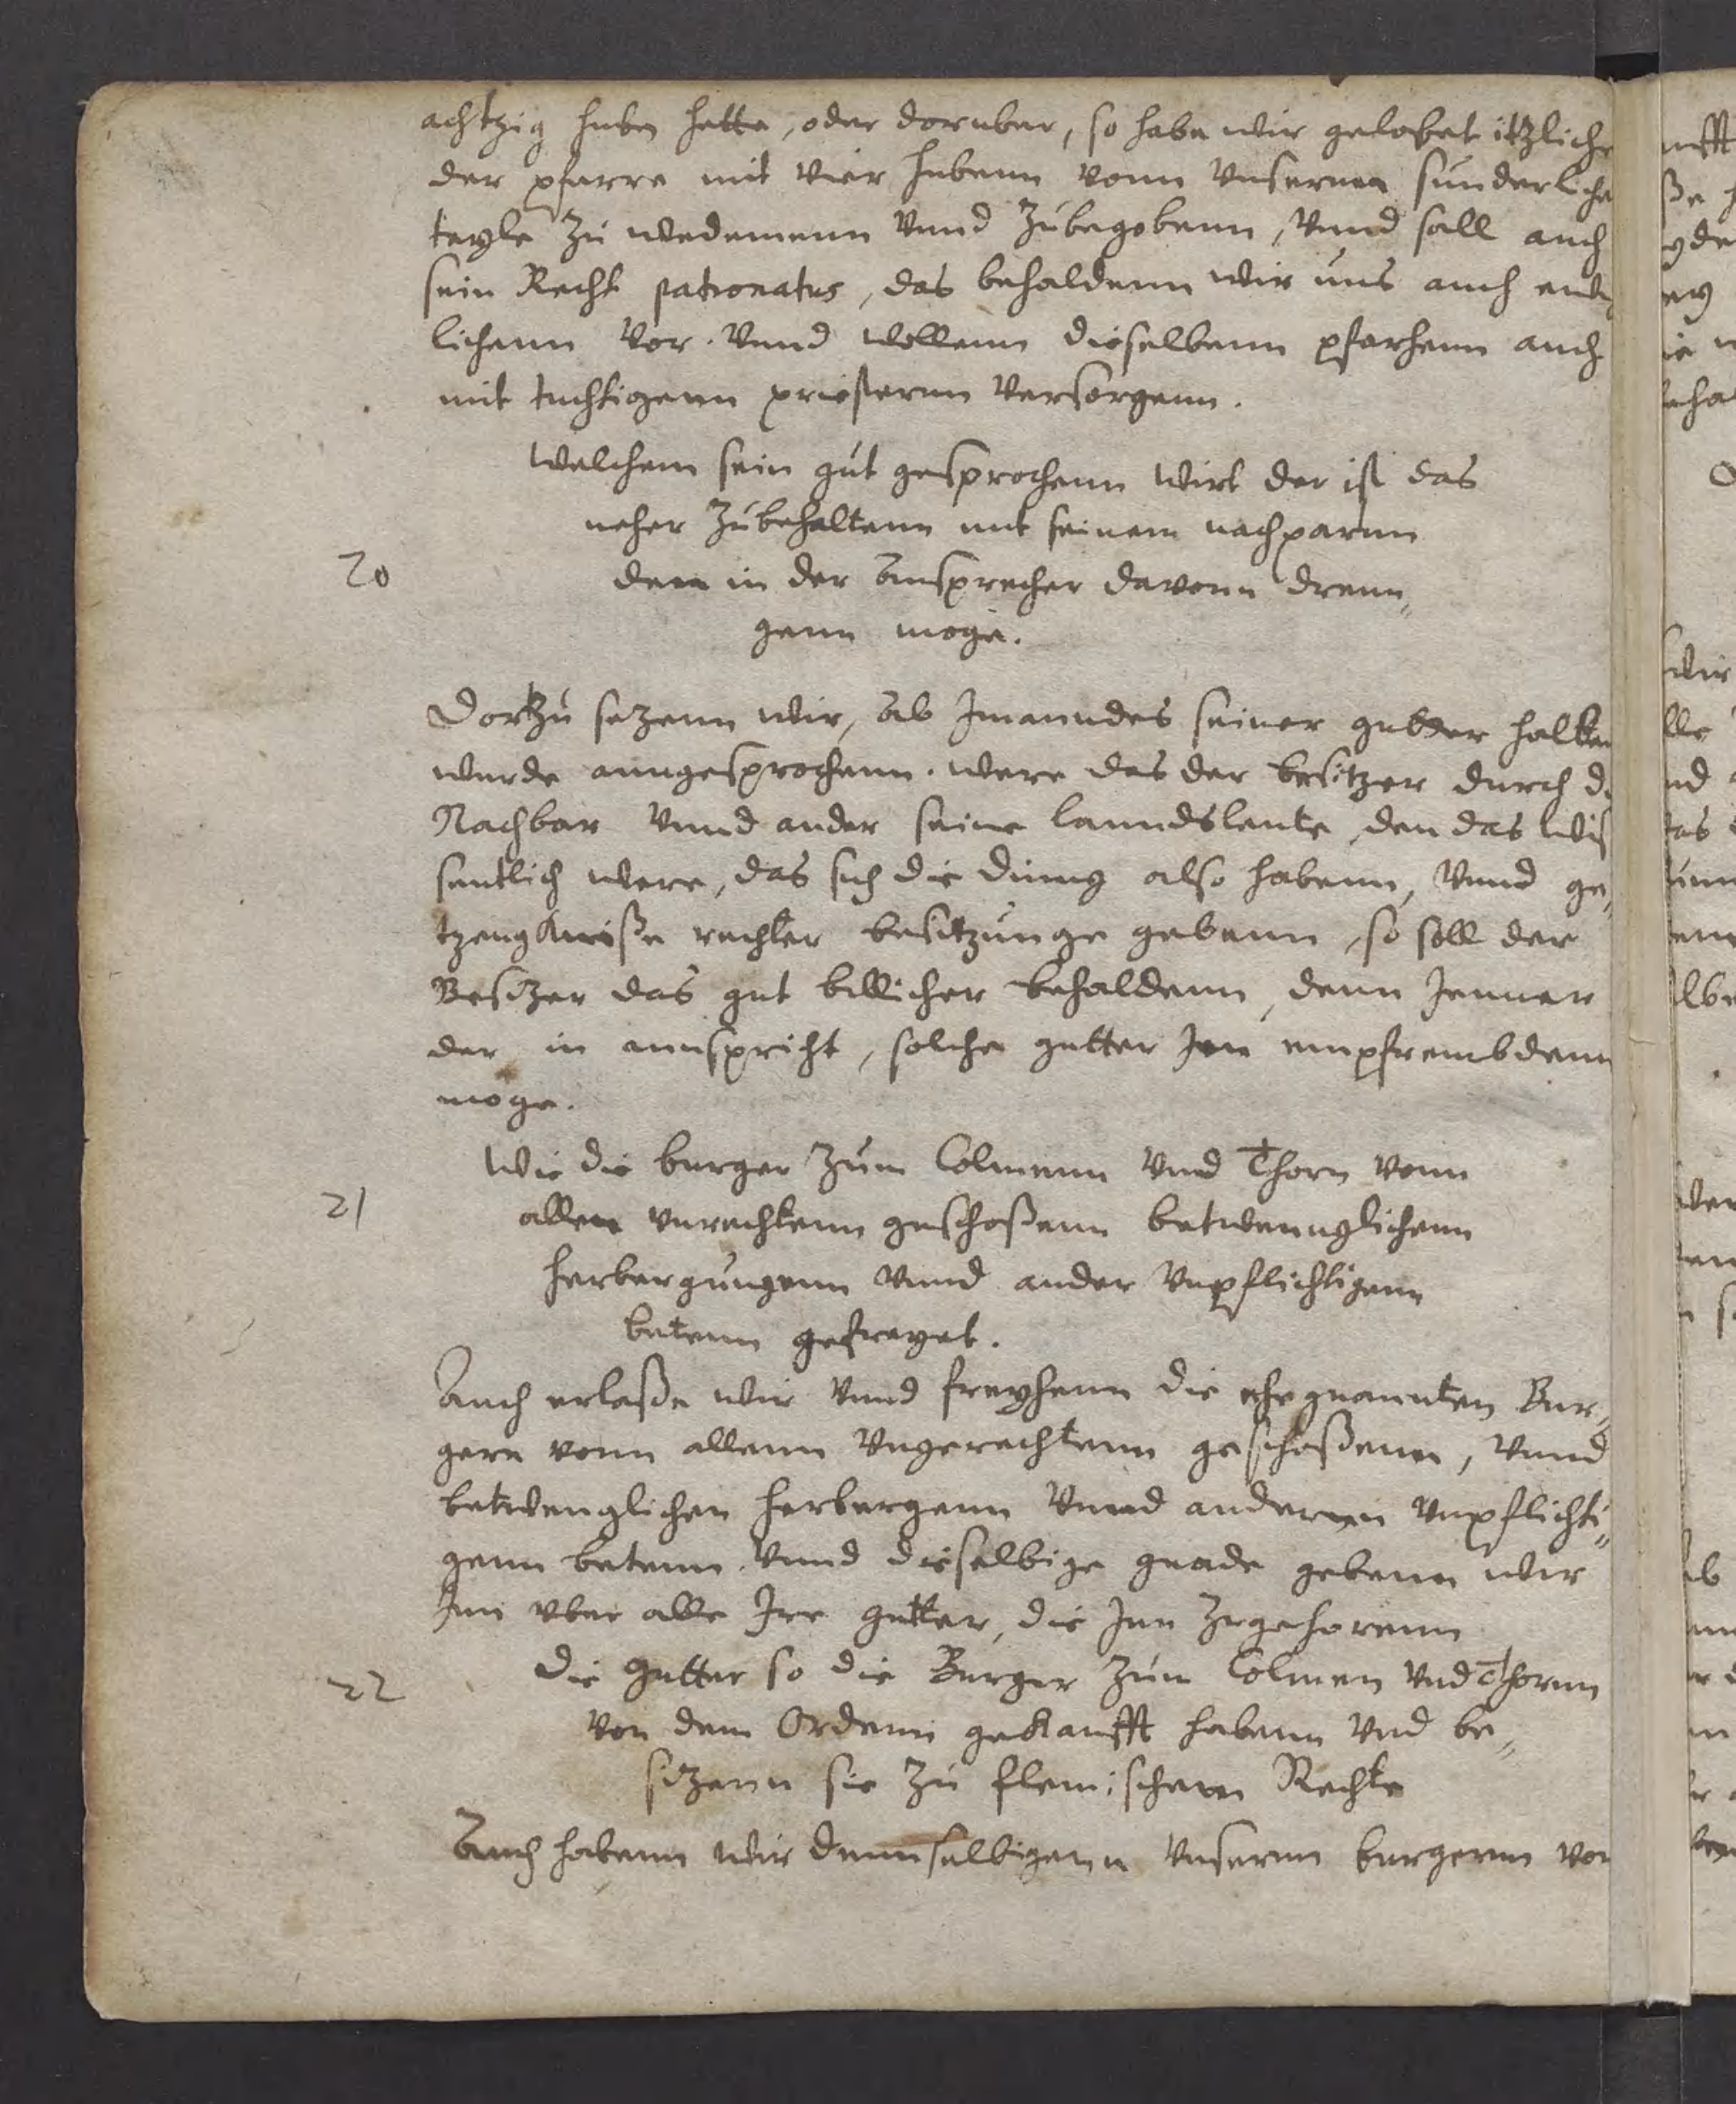 achtzig huben hette, oder doruber, so habe wir gelobet itzliche
der pfarre mit vier hubenn vonn vnsernn sunderliche
teyle zu wedemenn vnnd zubegobenn, vnnd sall auch
sein Recht patronatus, das behaldenn wir uns auch
lichenn vor. vnnd wellenn dieselbenn pfarhenn auch
mit tuchtigenn priesternn versorgenn.
welchem sein gut gesprochenn wirt der ist das
neher zubehaltenn mit seinem nachparnn
20
denn in der Ansprecher davonn drenn„
genn moge.
Dortzu sezenn wir, Ab Jmanndes seiner gutter halben
wurde anngesprochenn. were das der besitzer durch d
Nachbar vnnd ander seine lanndsleute, den das wis
sentlich were, das sich die dinng also habenn, vnnd ge„
tzeugknisse rechter besitzunge gebenn, so soll der
Besizer das gut billicher behaldenn, denn Jenner
der in annspricht, solche gutter Jnn empfrembdenn
moge.
Wie die burger zum Colmenn vnd Thorn vonn
21
allen vnrechtenn geschoßenn betwennglichenn
herbergungenn vnnd ander vnpflichtigenn
betenn gefreyet.
Auch erlaße wir vnnd freyhenn die ehegnannten Bur„
gern vonn allenn vngerechtenn geschoßenn, vnnd
betwenglichen herbergenn vnnd andernn vnpflichti„
genn betenn. vnnd dieselbige gnade gebenn wir
Jnn vber alle Jre gutter, die Jnn zugehorenn
22
Die gutter so die Burger zum Colmen vnd Thornn
von dem Ordenn gekaufft habenn vnd be„
sizenn sie zu flemischenn Rechte
Auch habenn wir dennselbigenn vnsernn burgernn vor